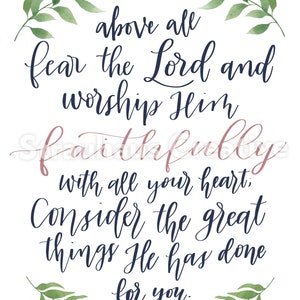 above all
fear the Lord and
worship Him
faithfully
with all your heart,
Consider the great
things He has done
for you.